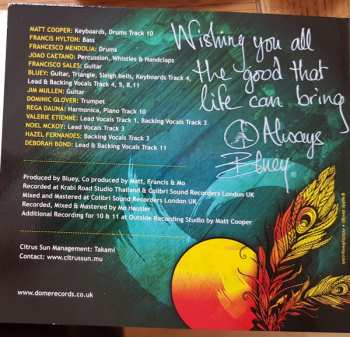 MATT COOPER: Keyboards, Drums Track 10
FRANCIS HYLTON: Bass
FRANCESCO MENDOLIA: Drums
JOAO CAETANO: Percussion, Whistles & Handclaps
FRANCISCO SALES: Guitar
BLUEY: Guitar, Triangle, Sleigh bells, Keyboards Track 4,
Lead & Backing Vocals Track 4, 5, 8, 11
JIM MULLEN: Guitar
DOMINIC GLOVER: Trumpet
REGA DAUNA: Harmonica, Piano Track 10
VALERIE ETIENNE: Lead Vocals Track 1. Backing Vocals Track 3
NOEL MCKOY: Lead Vocals Track 3
HAZEL FERNANDES: Backing Vocals Track 3
DEBORAH BOND: Lead & Backing Vocals Track 11
Wishing you all
the good that
life can bring
Always
Bluey
Produced by Bluey, Co produced by Matt, Francis & Mo
Recorded at Krabi Road Studio Thailand & Colibri Sound Recorders London UK
Mixed and Mastered at Colibri Sound Recorders London UK
Recorded, Mixed & Mastered by Mo Hausler
Additional Recording for 10 & 11 at Outside Recording Studio by Matt Cooper
Citrus Sun Management: Takami
Contact: www.citrussun.mu
www.domerecords.co.uk